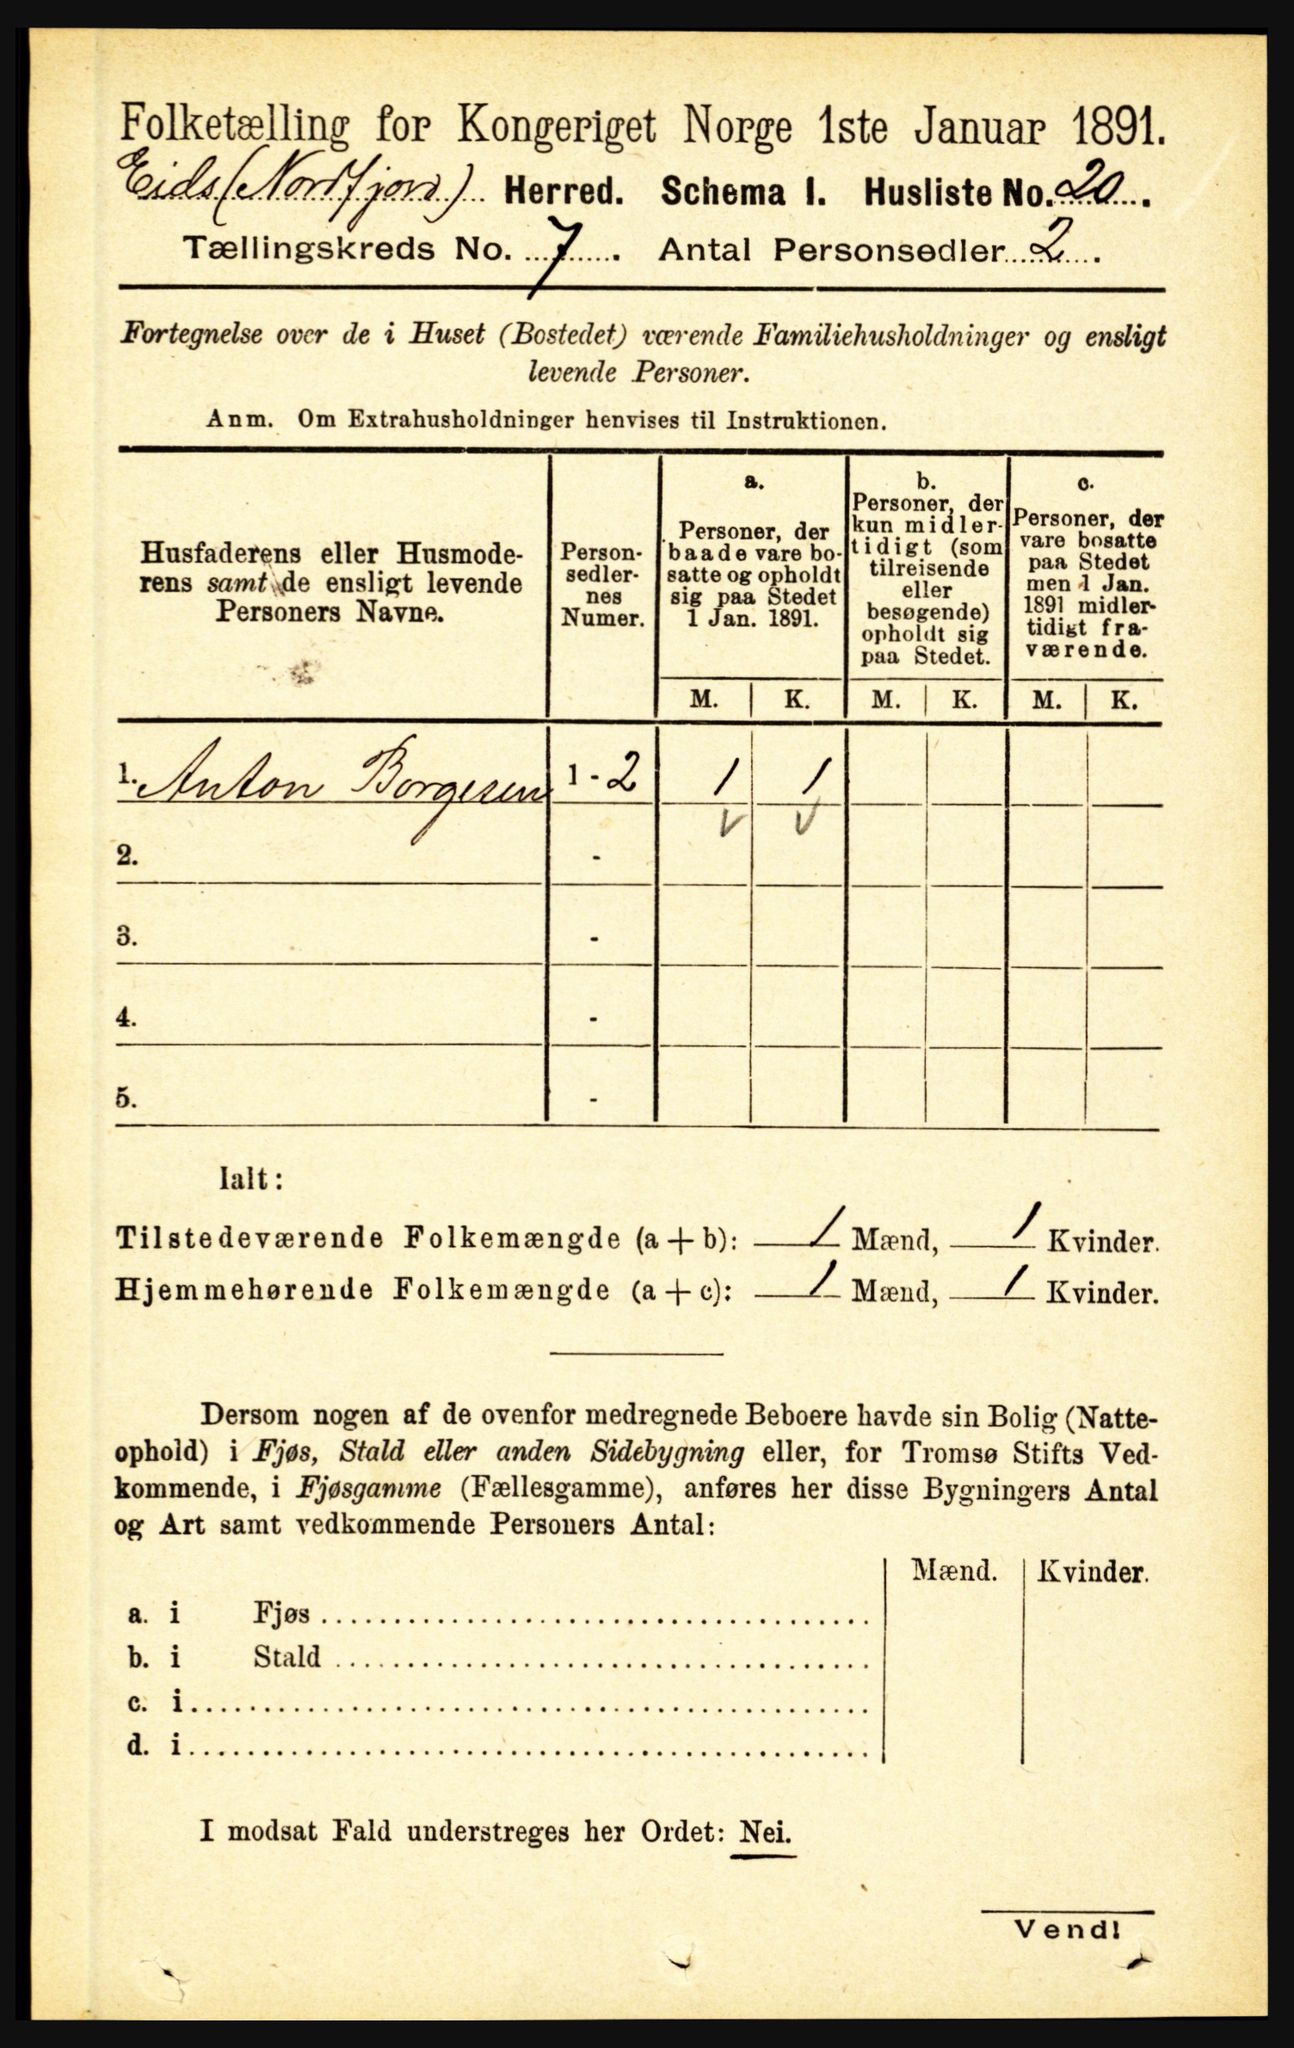 Folketælling for Kongeriget Norge 1ste Januar 1891.
Eids (Nordfjord) Herred. Schema I. Husliste No. 20.
Tællingskreds No. 7. Antal Personsedler 2.
Fortegnelse over de i Huset (Bostedet) værende Familiehusholdninger og ensligt
levende Personer.
Anm. Om Extrahusholdninger henvises til Instruktionen.
Husfaderens eller Husmode-
rens samt de ensligt levende
Personers Navne.
Person-
sedler-
nes
Numer.
a.
Personer, der
baade vare bo-
satte og opholdt
sig paa Stedet
1 Jan. 1891.
b.
Personer, der
kun midler-
tidigt (som
tilreisende
eller
besøgende)
opholdt sig
paa Stedet.
c.
Personer, der
vare bosatte
paa Stedet
men 1 Jan.
1891 midler-
tidigt fra-
værende.
M. K. M. K. M. K.
1. Anton Borgesen 1 - 2 1 1
2. -
3. -
4. -
5. -
Ialt:
Tilstedeværende Folkemængde (a + b): 1 Mænd, 1 Kvinder.
Hjemmehørende Folkemængde (a + c): 1 Mænd, 1 Kvinder.
Dersom nogen af de ovenfor medregnede Beboere havde sin Bolig (Natte-
ophold) i Fjøs, Stald eller anden Sidebygning eller, for Tromsø Stifts Ved-
kommende, i Fjøsgamme (Fællesgamme), anføres her disse Bygningers Antal
og Art samt vedkommende Personers Antal:
Mænd. Kvinder.
a. i Fjøs
b. i Stald
c. i
d. i
I modsat Fald understreges her Ordet: Nei.
Vend!